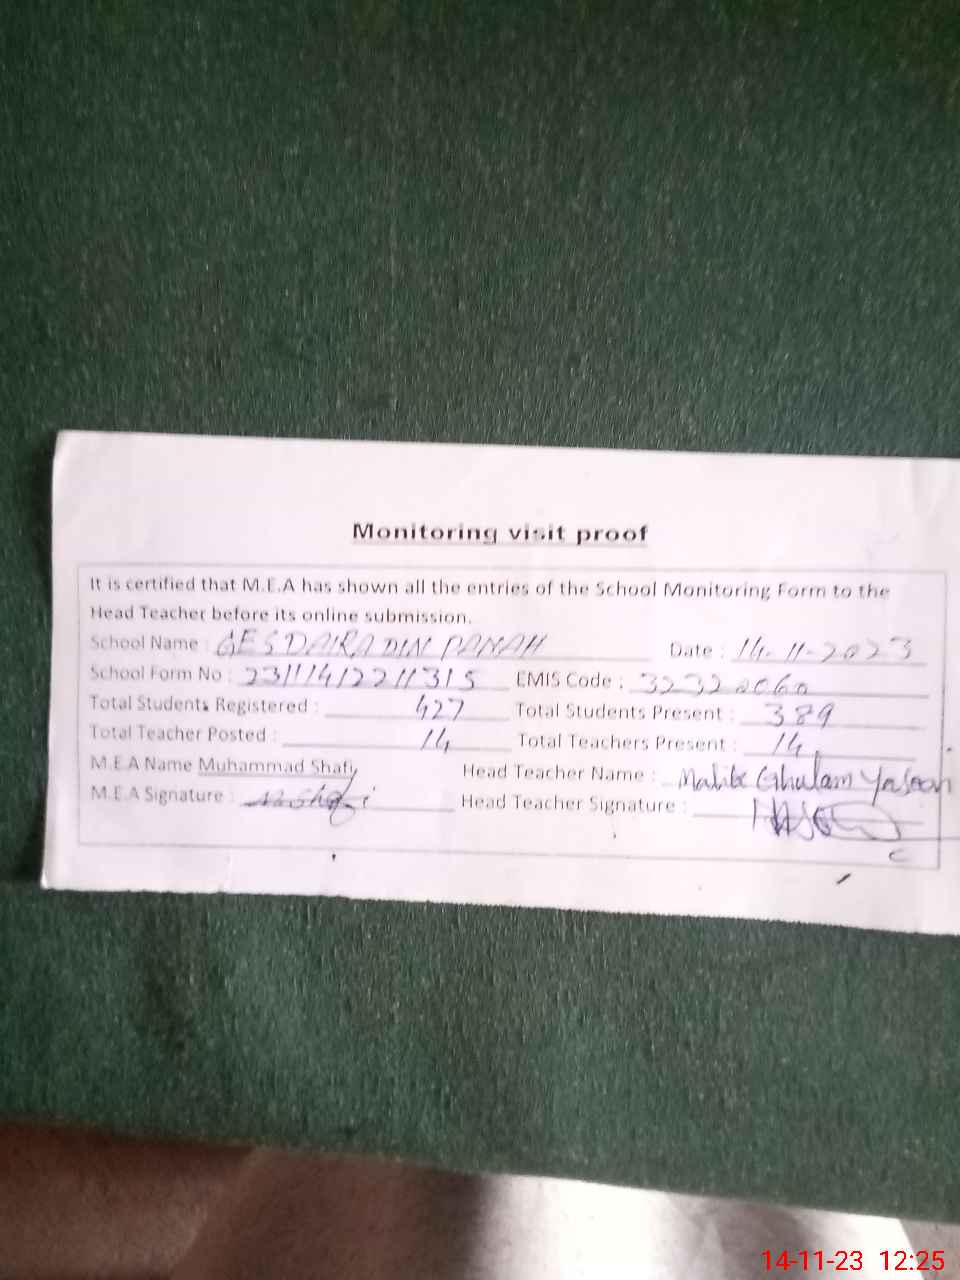 Monitoring visit proof
It is certified that M.E.A has shown all the entries of the School Monitoring Form to the
Head Teacher before its online submission.
School Name : GES DAIRA DIN PANAH Date : 14-11-2023
School Form No : 23111412211315 EMIS Code : 32320060
Total Students Registered : 427 Total Students Present : 389
Total Teacher Posted : 14 Total Teachers Present : 14
M.E.A Name Muhammad Shafi Head Teacher Name : Malik Ghulam Yaseen
M.E.A Signature : M Shafi Head Teacher Signature :
14-11-23 12:25